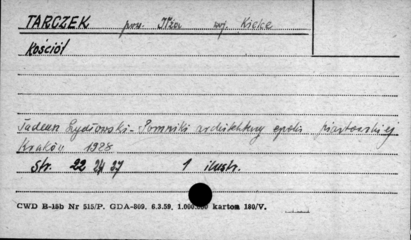 TARCZEK pow. Iłża woj. Kielce
Kościół
Tadeusz Szydłowski - Pomniki architektury epoki piastowskiej
Kraków 1928
str. 22 24 27 1 ilustr.
CWD B-15b Nr 515/P. GDA-809. 6.3.59. 1.000.000 kartom 180/V.